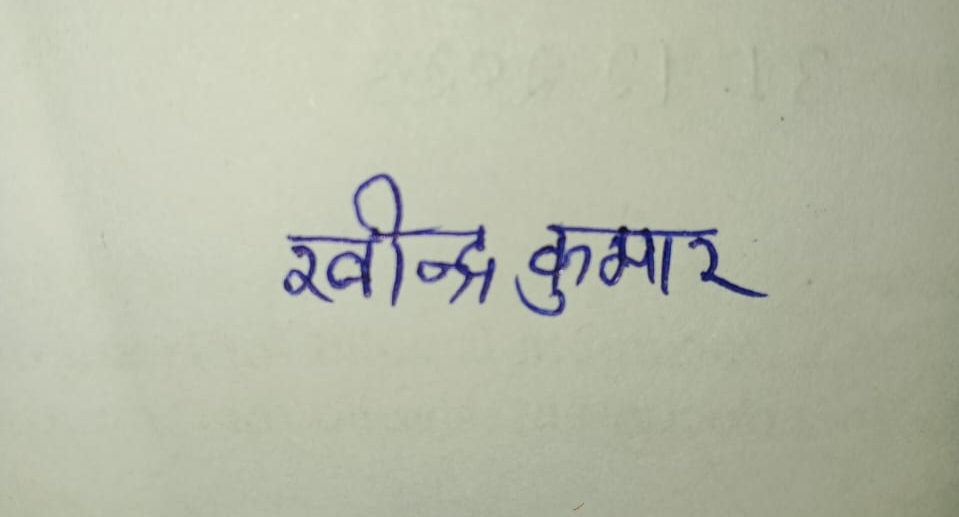 रवीन्द्र कुमार